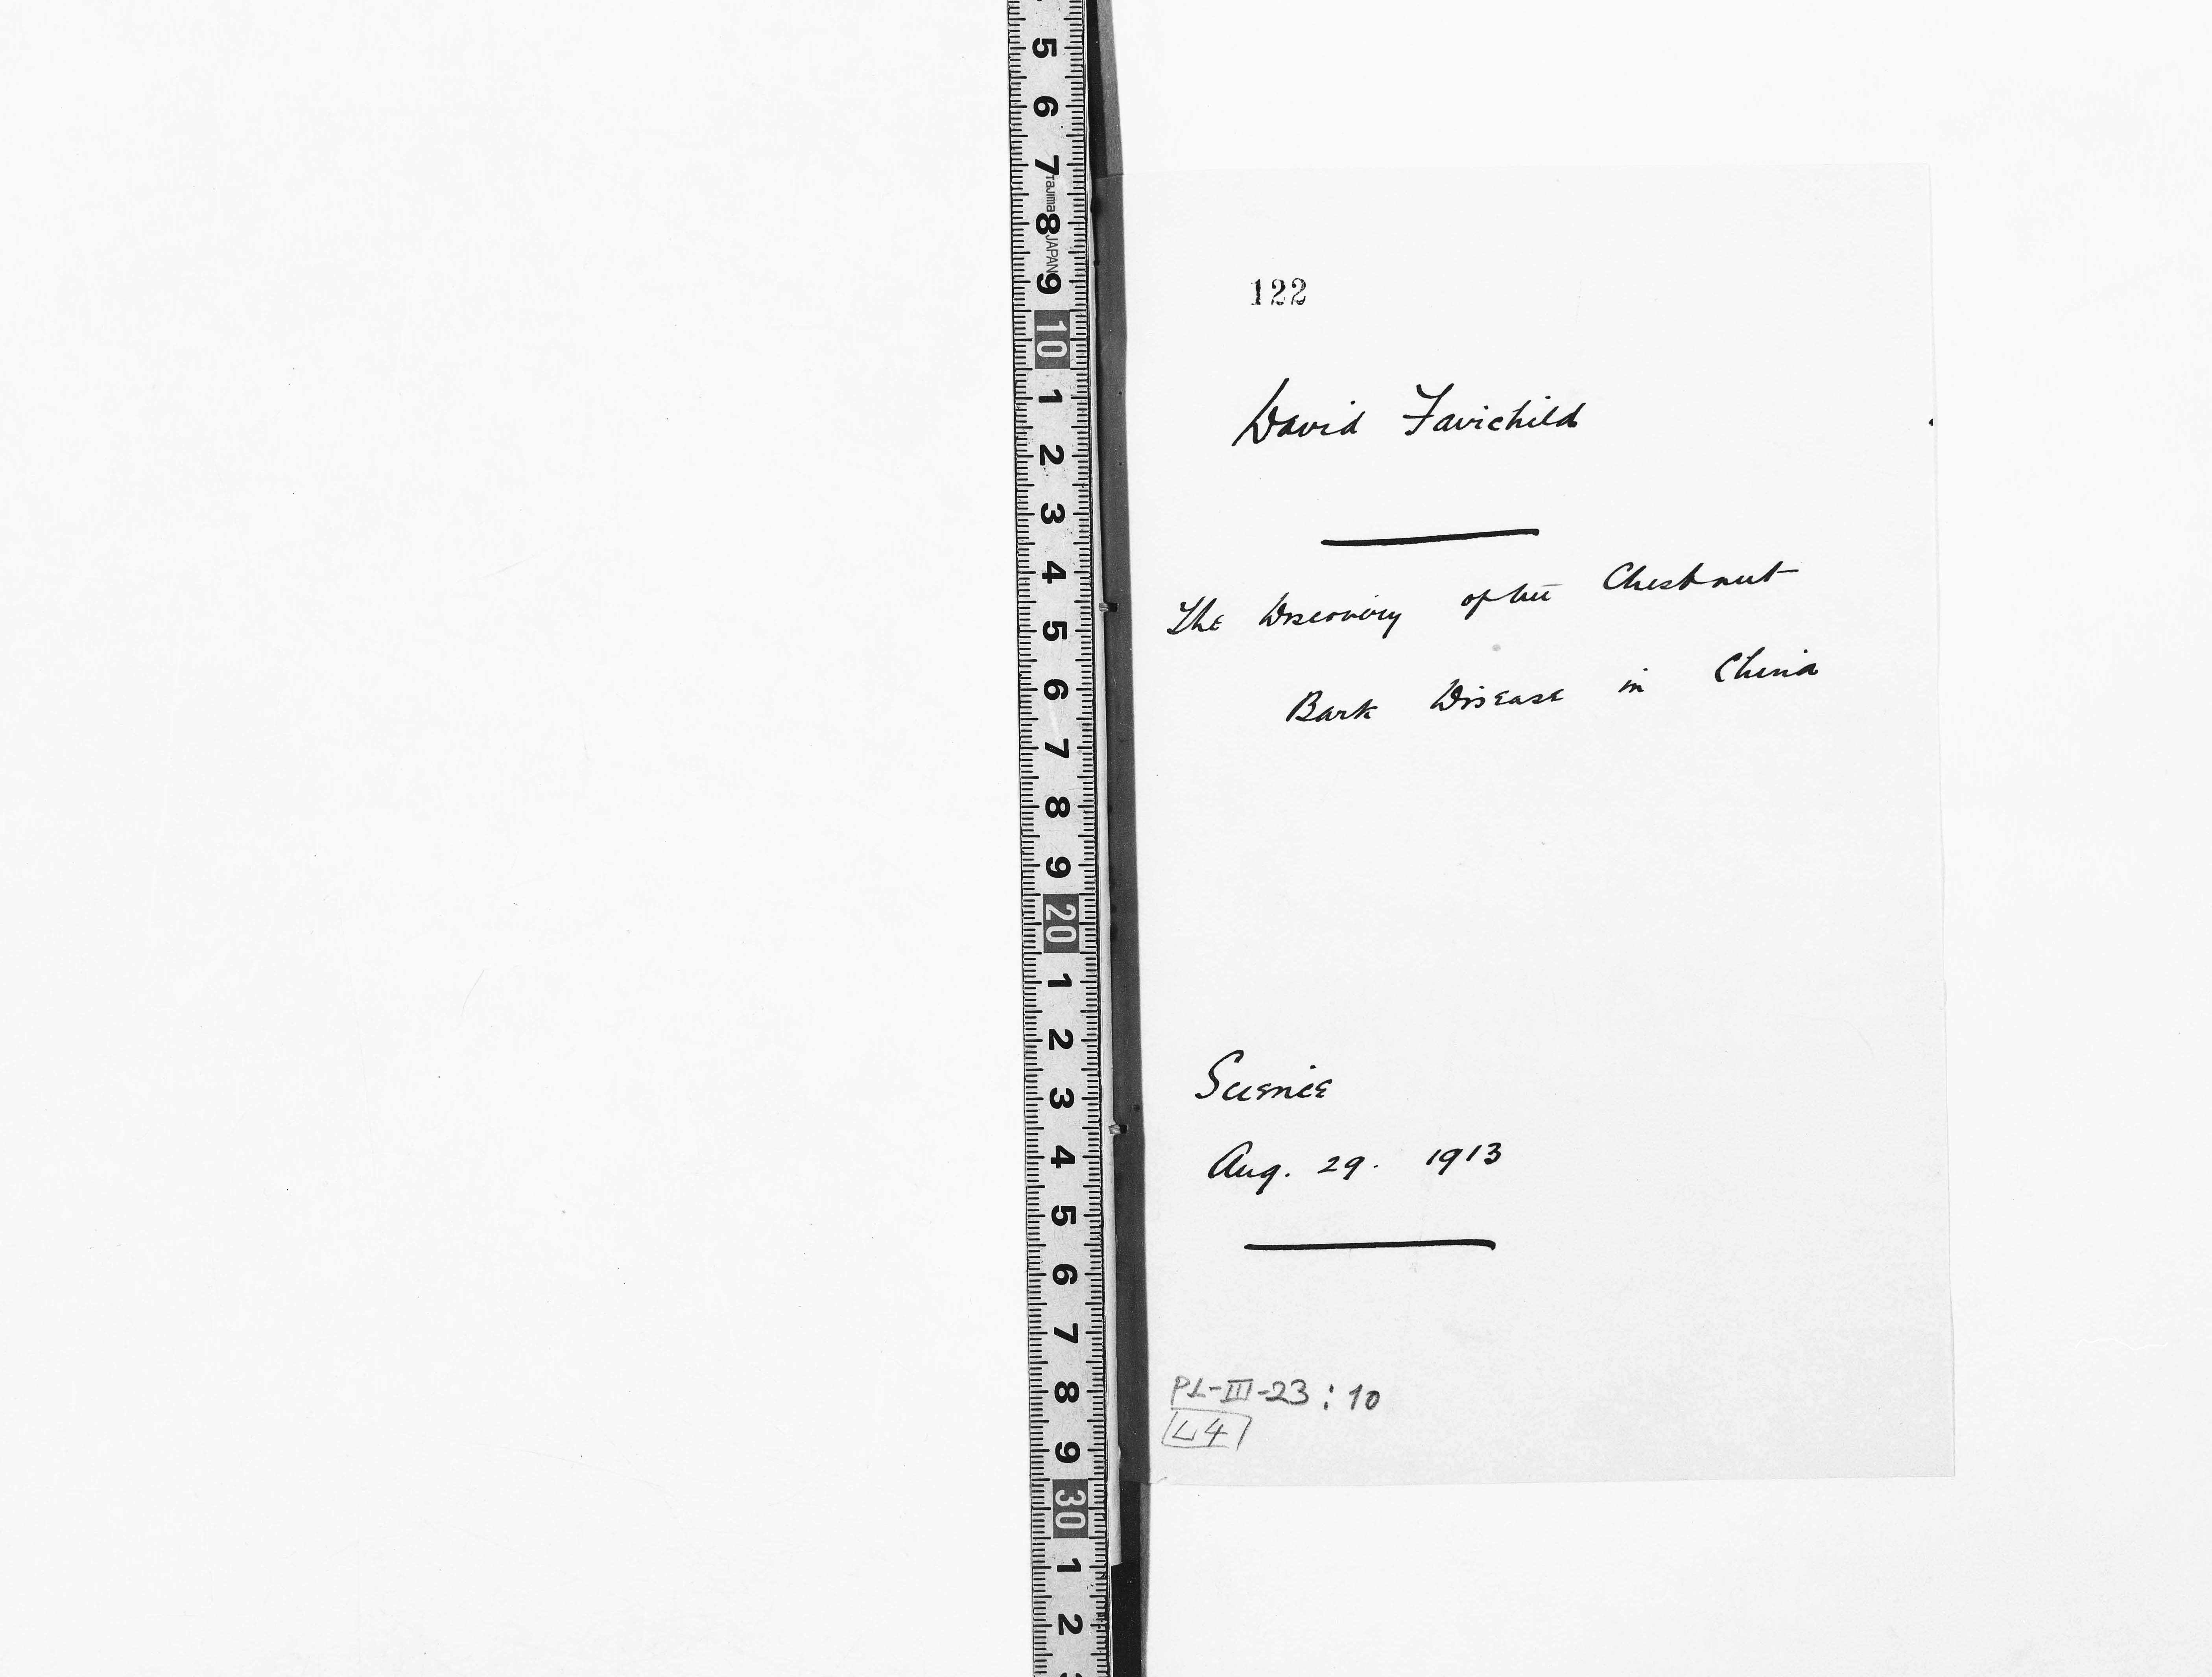 5
6
7
Tajima
8
JAPAN
9
10
1
2
3
4
5
6
7
8
9
20
1
2
3
4
5
6
7
8
9
30
1
2
122
David Fairchild
The Discovery of the Chestnut
Bark Disease in China
Science
Aug. 29. 1913
PL-III-23:10
L4